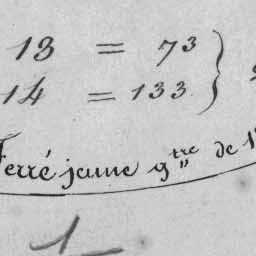 13 = 73
14 = 133 }
Ferré jeune g^tre de 1
1